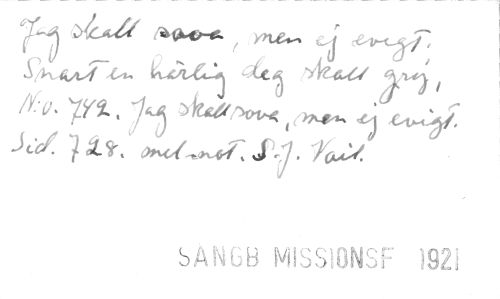 Jag skall sova, men ej evigt.
Snart en härlig dag skall gry,
N:o. 742. Jag skall sova, men ej evigt.
Sid. 728. mel-not. S.J. Vail.
SANGB MISSIONSF 1921